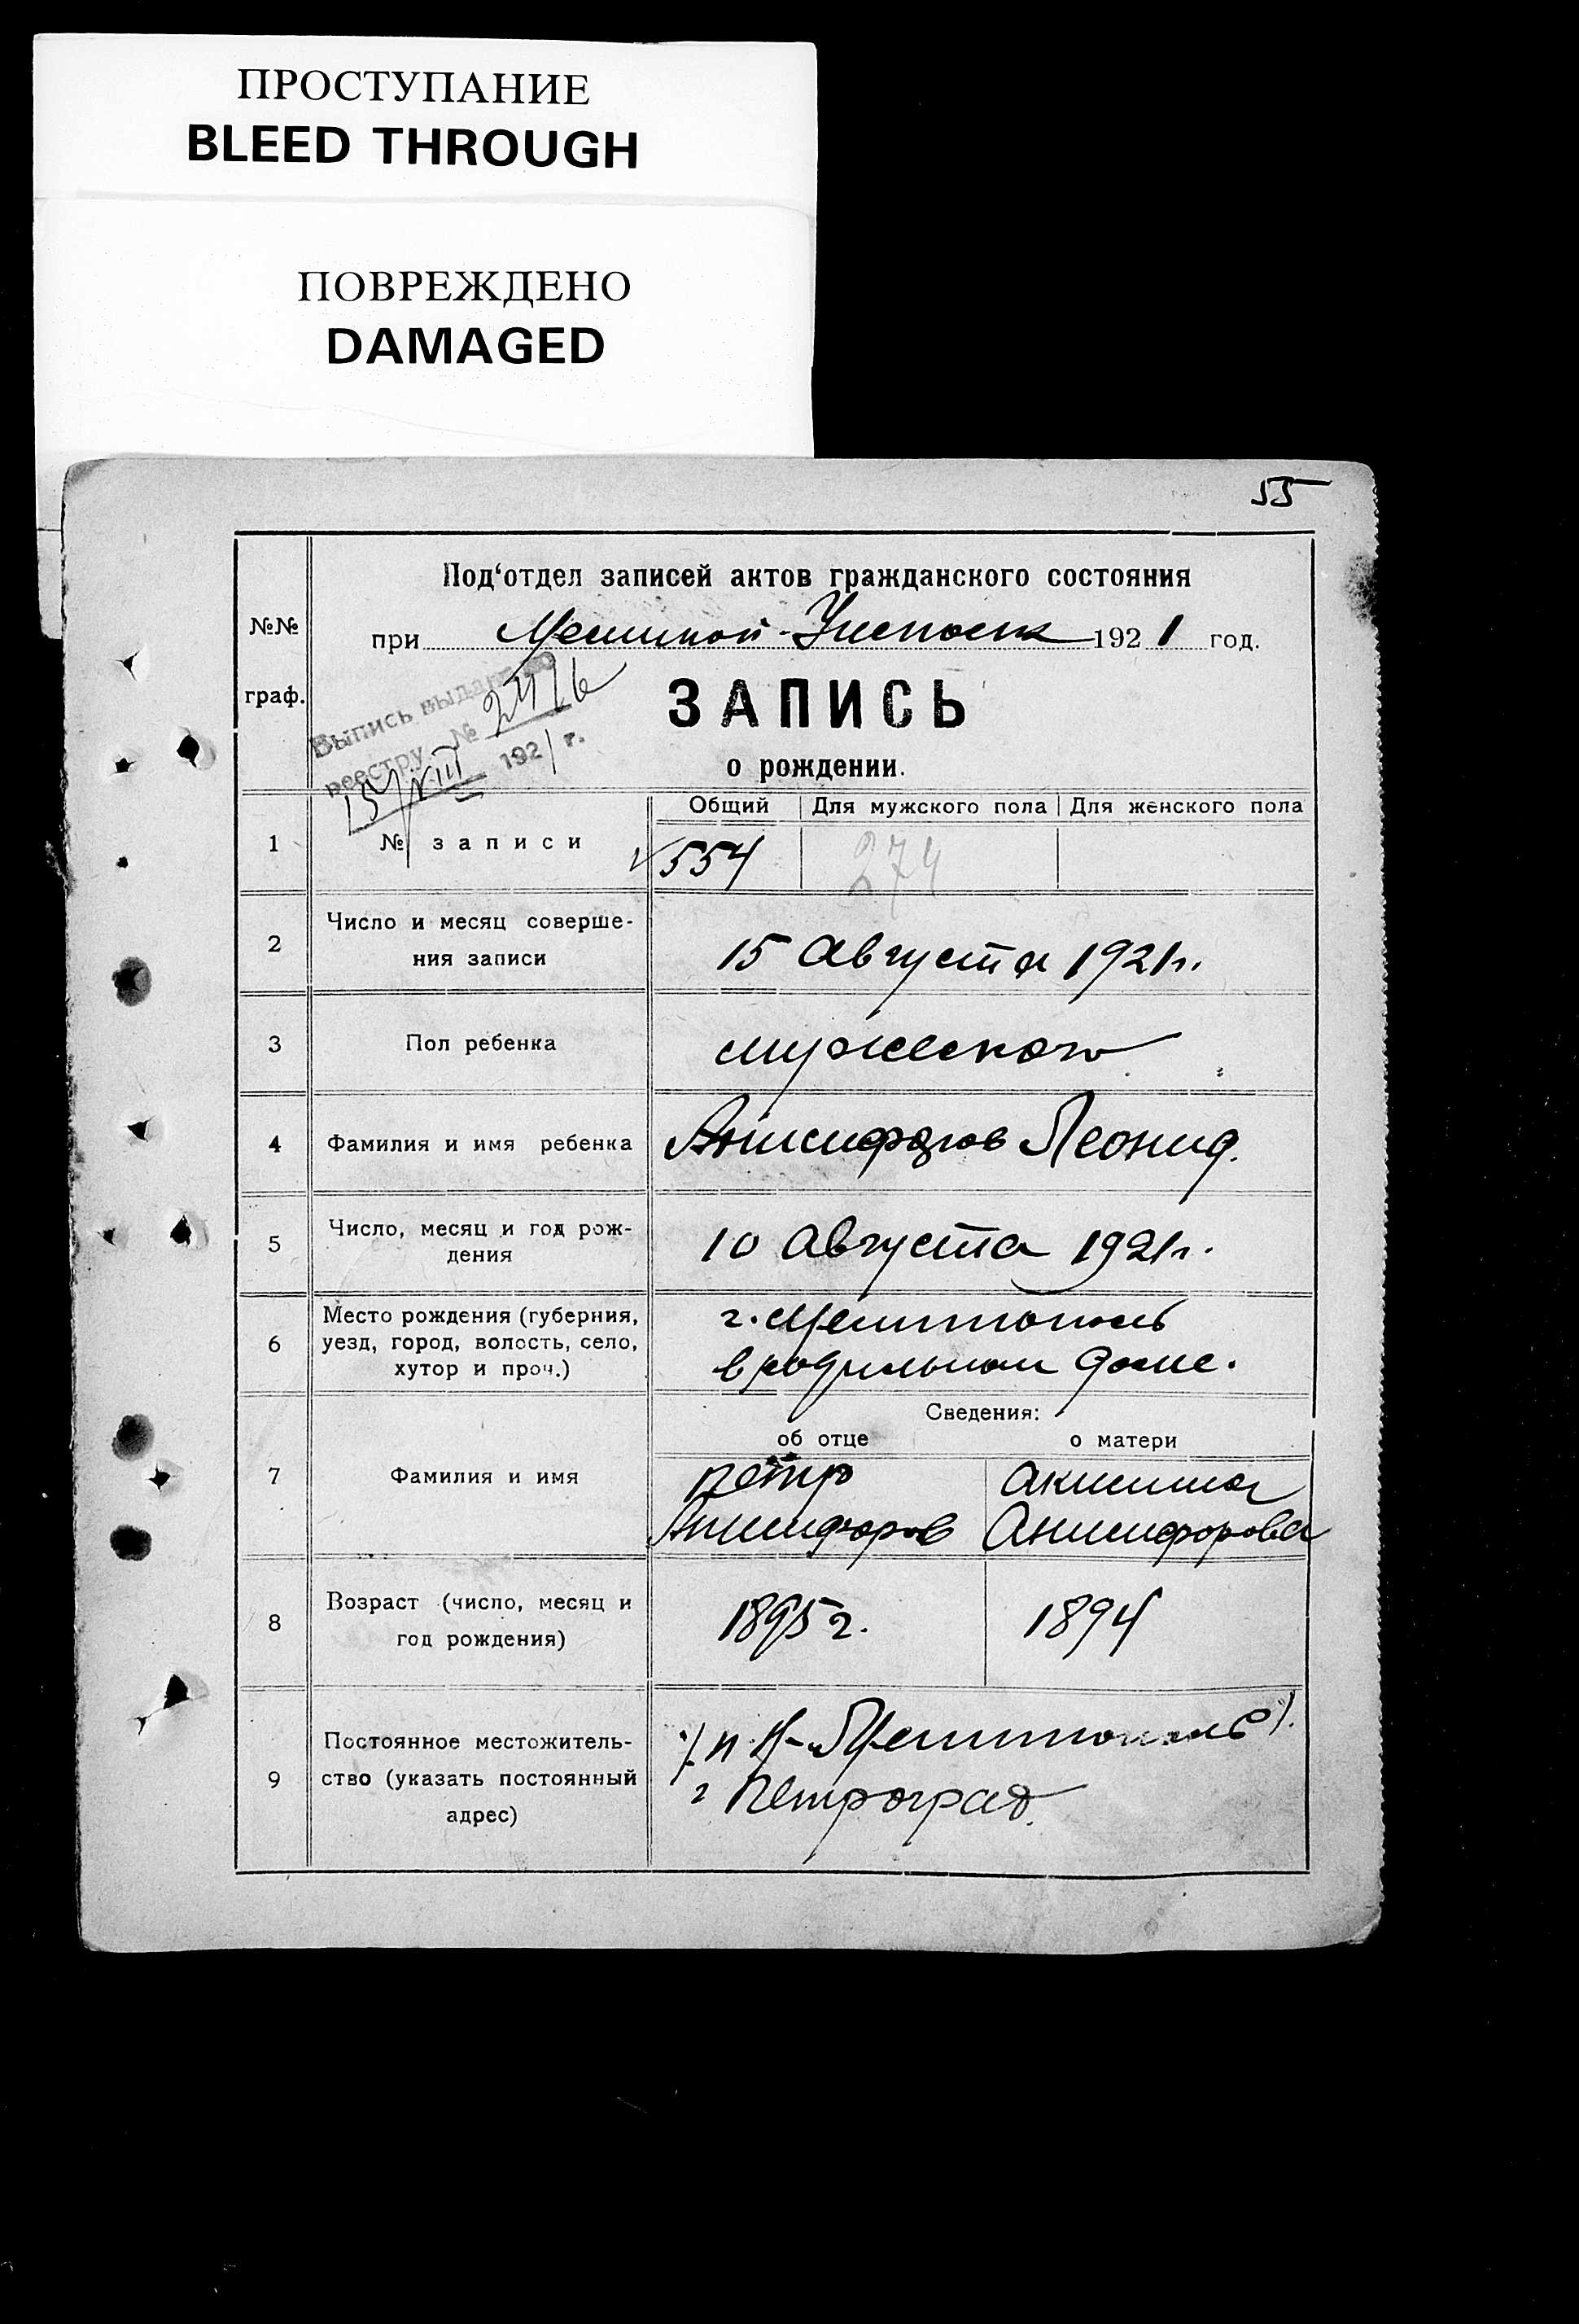 ПРОСТУПАНИЕ
BLEED THROUGH
ПОВРЕЖДЕНО
DAMAGED
55
№№
граф.
Под‘отдел записей актов гражданского состояния
при 1921 год.
Выпись выдана по
реестру № 2476
15/VIII 1921 г.
ЗАПИСЬ
о рождении.
Общий Для мужского пола Для женского пола
1 № записи 554 274
2 Число и месяц соверше-
ния записи
15 Августа 1921 г.
3 Пол ребенка мужеского
4 Фамилия и имя ребенка Анисифоров Леонид.
5 Число, месяц и год рож-
дения
10 Августа 1921 г.
6 Место рождения (губерния,
уезд, город, волость, село,
хутор и проч.)
г. Мелитополь
в родильном доме.
Сведения:
об отце о матери
7 Фамилия и имя
Петр Аксинья
Анисифоров Анисифорова
8 Возраст (число, месяц и
год рождения)
1895 г. 1894
9 Постоянное местожитель-
ство (указать постоянный
адрес)
Мелитополь
г Петроград.